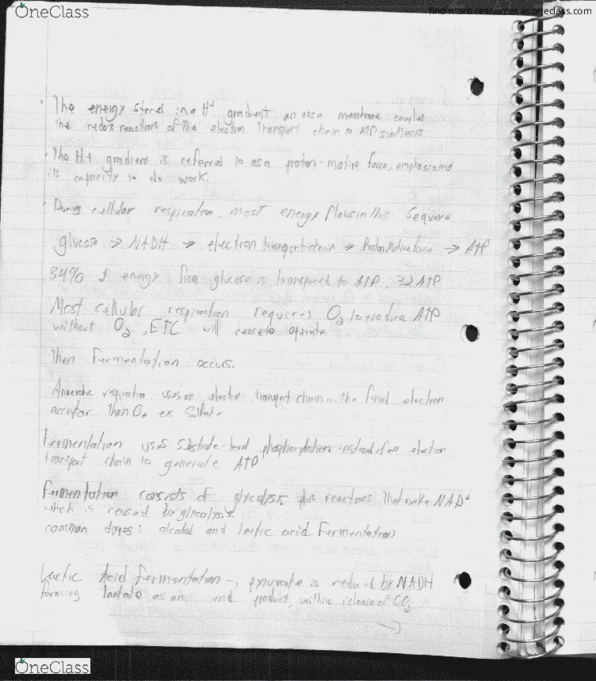 OneClass
find more resources at oneclass.com
• The energy stored in a H+ gradient across a membrane couples
the redox reactions of the electron transport chain to ATP synthesis
• The H+ gradient is referred to as a proton-motive force, emphasizing
its capacity to do work.
• During cellular respiration, most energy flows in this sequence
glucose → NADH → electron transport chain → Proton Motive force → ATP
34% of energy from glucose is transferred to ATP, 32 ATP
Most cellular respiration requires O2 to produce ATP
without O2, ETC will cease to operate
Then Fermentation occurs.
Anaerobic respiration uses an electron transport chain with a final electron
acceptor than O2 ex Sulfate
Fermentation uses Substrate-level phosphorylation instead of an electron
transport chain to generate ATP
Fermentation consists of glycolysis plus reactions that make NAD+
which is reused by glycolysis.
common types: alcohol and lactic acid Fermentation
Lactic Acid Fermentation -, pyruvate is reduced by NADH
forming lactate as an end product, with no release of CO2
OneClass